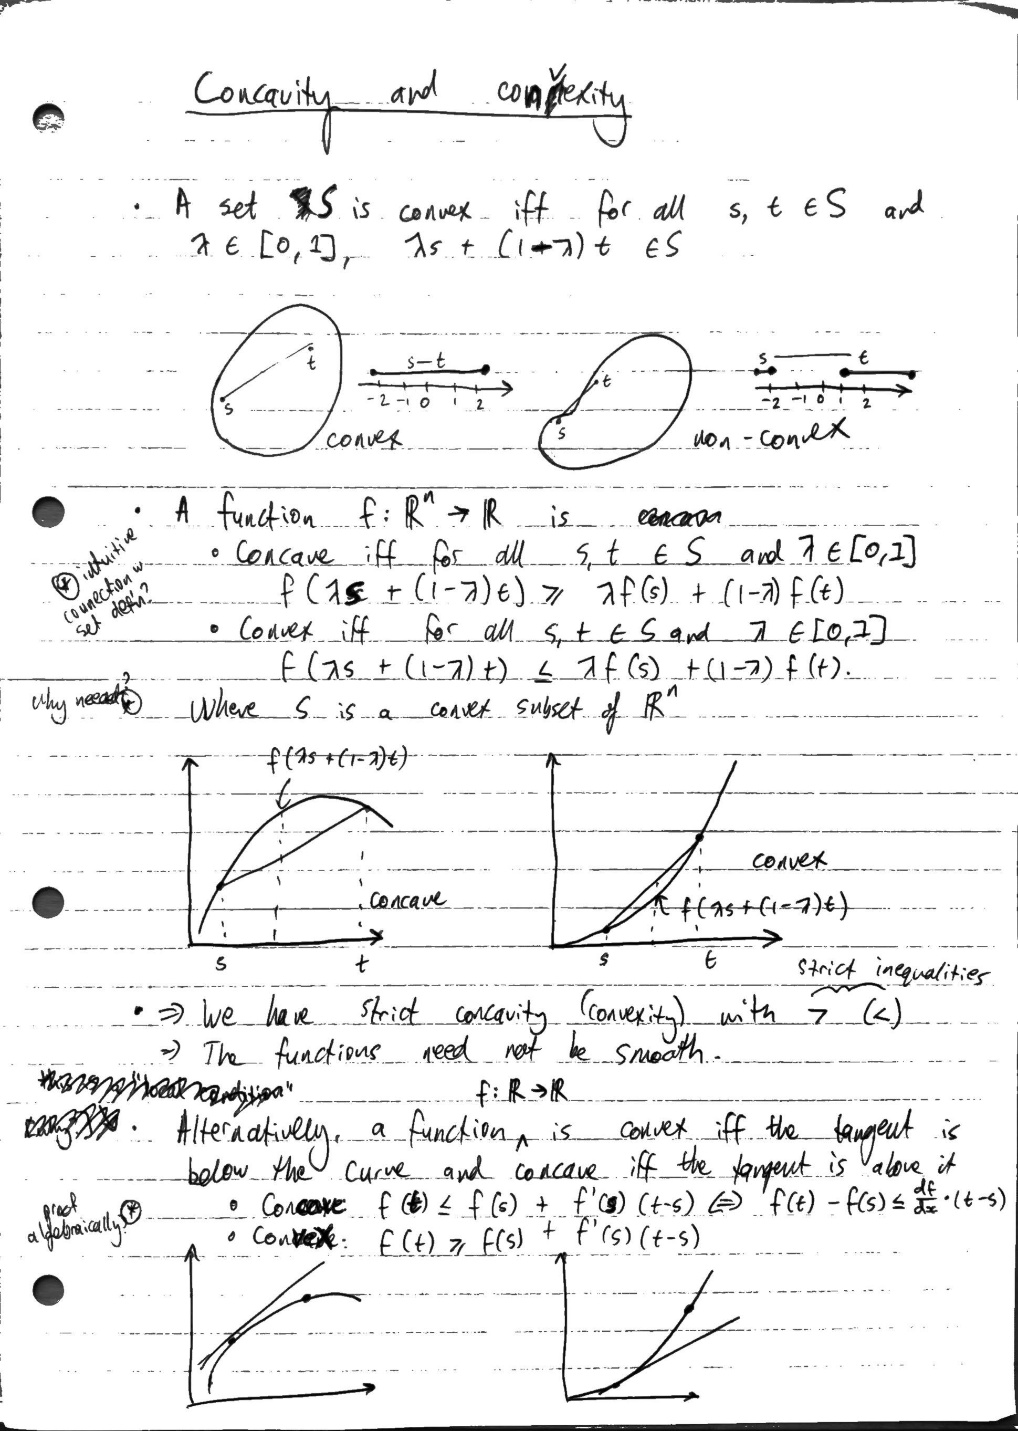 Concavity and convexity
• A set S is convex iff for all s, t ∈ S and
λ ∈ [0,1], λs + (1-λ)t ∈ S
s t
s–t
-2 -1 0 1 2
convex
s t
s t
-2 -1 0 1 2
non-convex
• A function f: ℝⁿ → ℝ is
• Concave iff for all s, t ∈ S and λ ∈ [0,1]
f(λs + (1-λ)t) ≥ λf(s) + (1-λ)f(t)
⊛ intuitive
connection w
set defn?
• Convex iff for all s, t ∈ S and λ ∈ [0,1]
f(λs + (1-λ)t) ≤ λf(s) + (1-λ)f(t).
why need? ⊛
Where S is a convex subset of ℝⁿ
f(λs + (1-λ)t)
concave
s t
convex
f(λs + (1-λ)t)
s t
strict inequalities
• ⇒ We have strict concavity (convexity) with > (<)
⇒ The functions need not be smooth.
f: ℝ→ℝ
• Alternatively, a function ∧ is convex iff the tangent is
below the curve and concave iff the tangent is above it
proof
algebraically? ⊛
• Concave f(t) ≤ f(s) + f'(s)(t-s) ⇔ f(t) - f(s) ≤ df/dx · (t-s)
• Convex: f(t) ≥ f(s) + f'(s)(t-s)